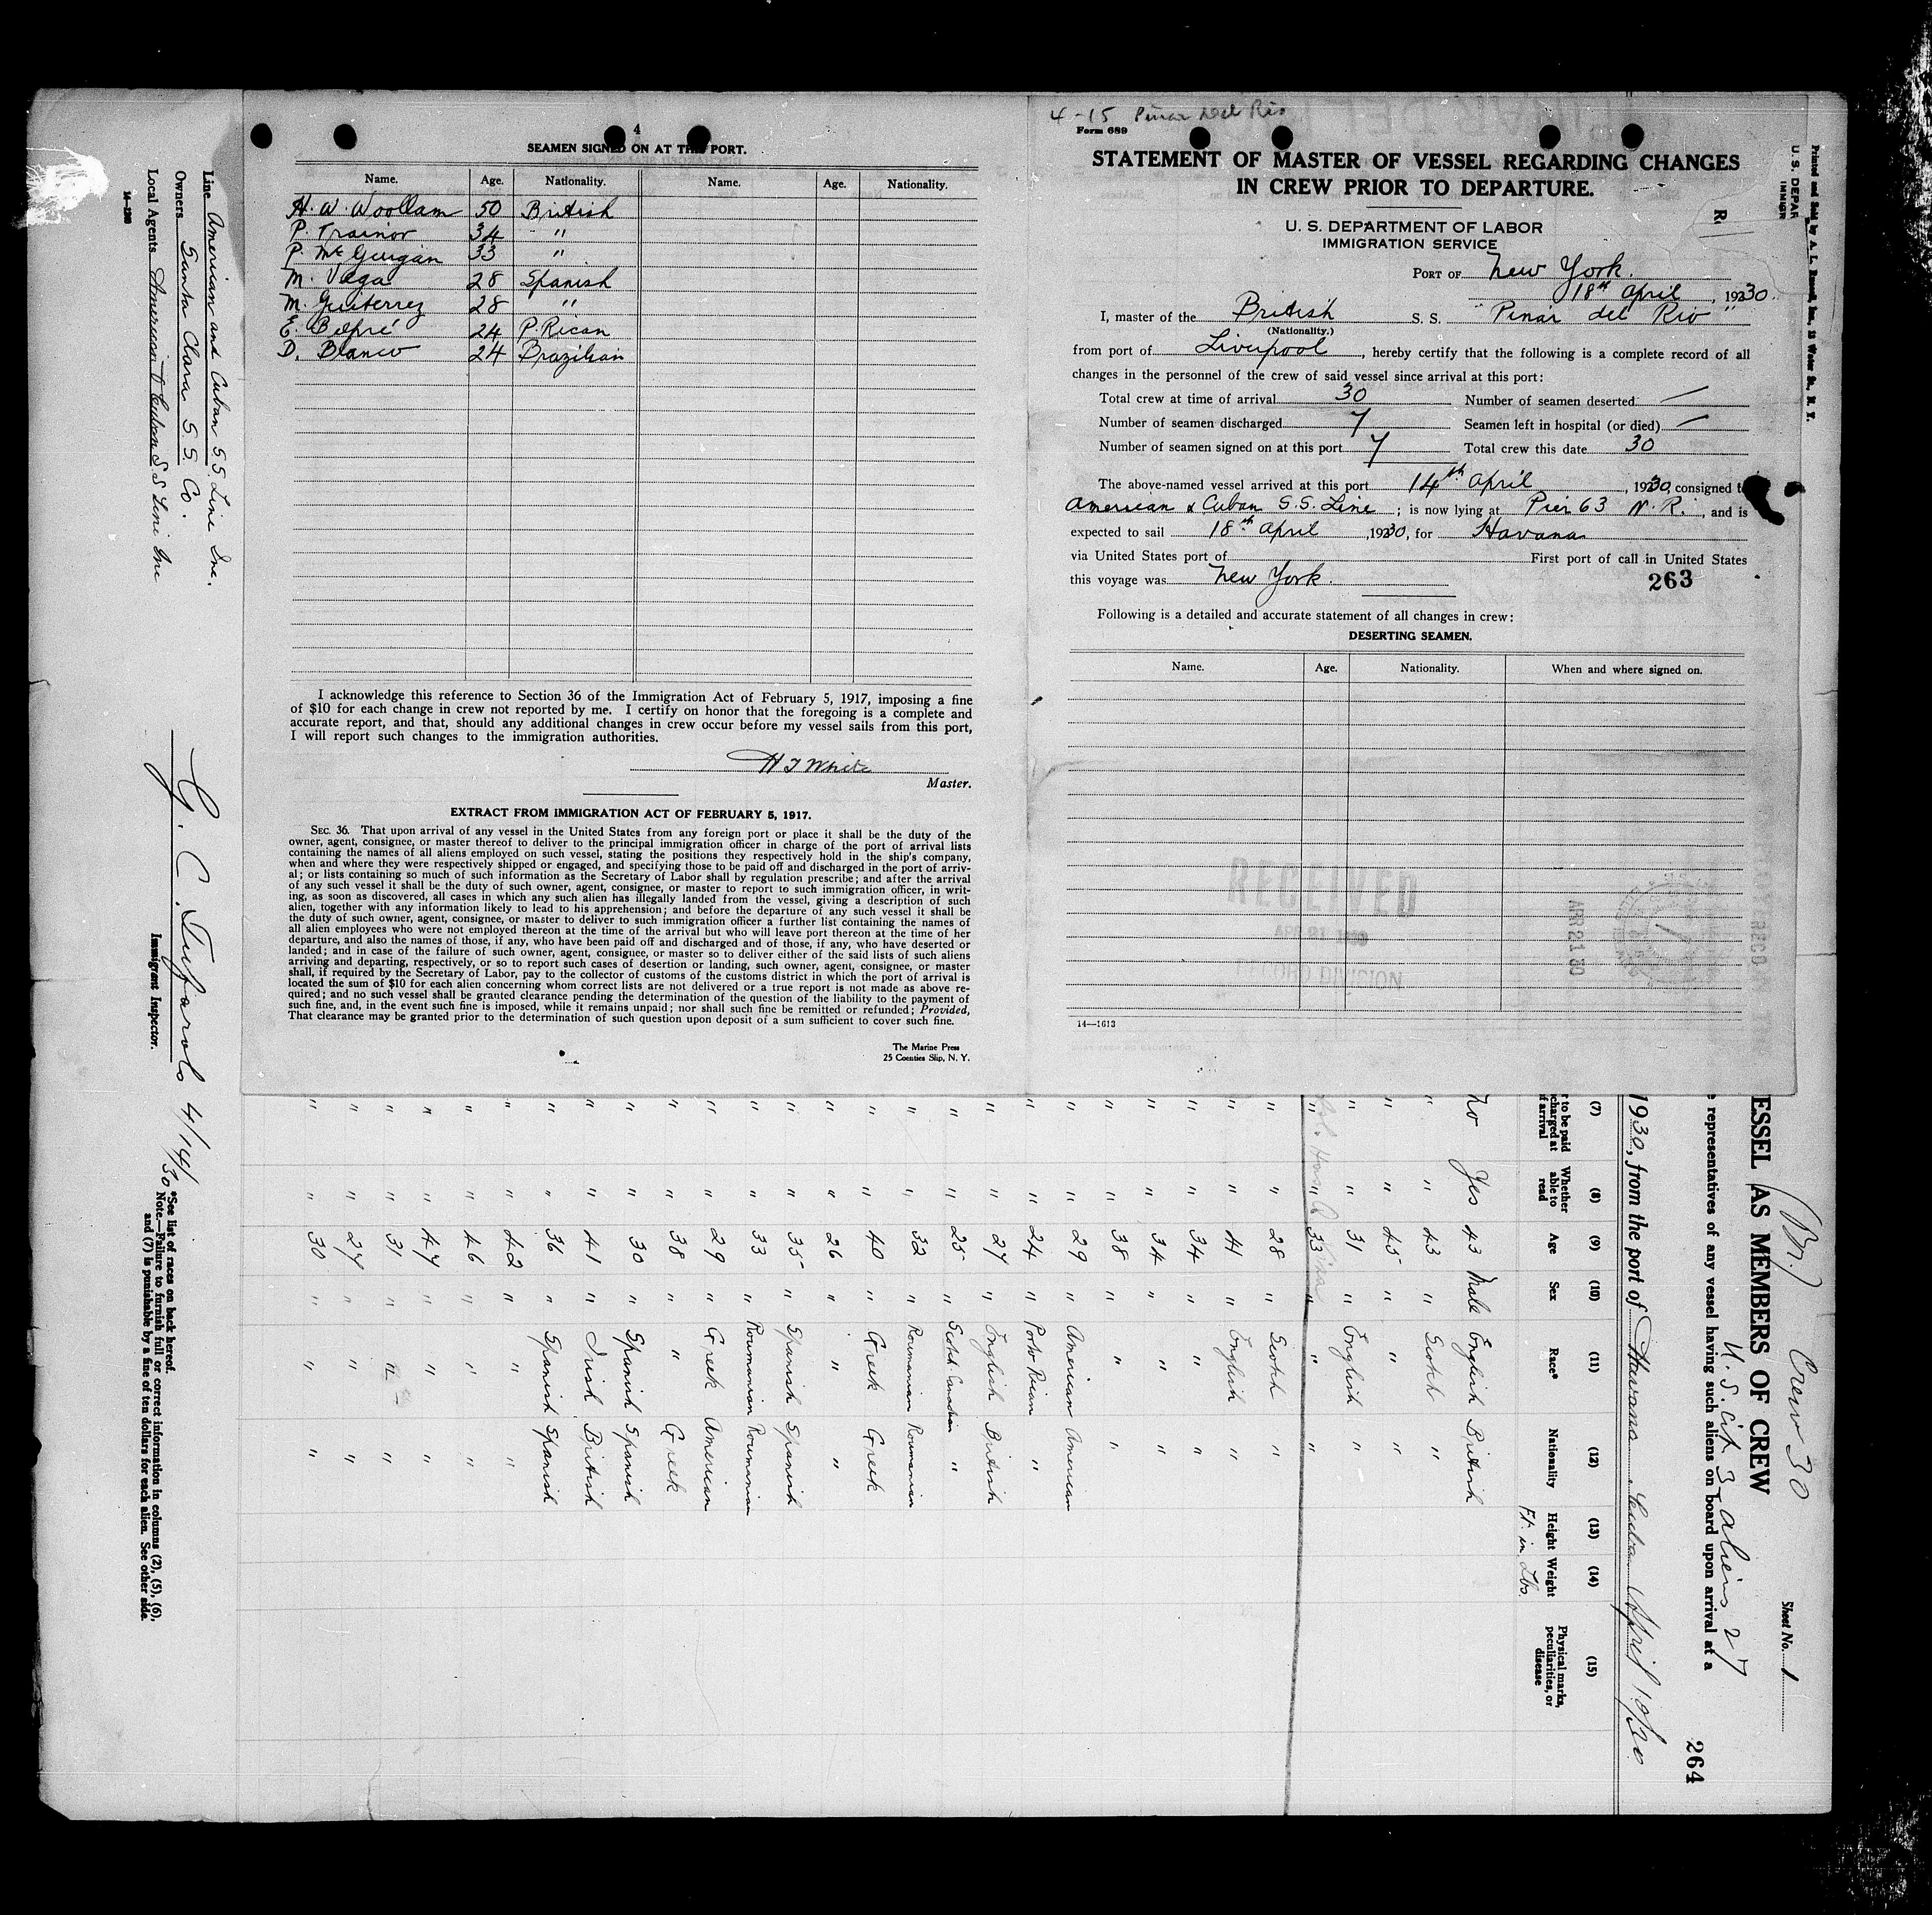 4
SEAMEN SIGNED ON AT THIS PORT.
Name. Age. Nationality. Name. Age. Nationality.
H. W. Woollam 50 British
P. Trainor 34 "
P. McGuigan 33 "
M. Vega 28 Spanish
M. Guiterrez 28 "
E. Belfré 24 P. Rican
D. Blanco 24 Brazilian
I acknowledge this reference to Section 36 of the Immigration Act of February 5, 1917, imposing a fine
of $10 for each change in crew not reported by me. I certify on honor that the foregoing is a complete and
accurate report, and that, should any additional changes in crew occur before my vessel sails from this port,
I will report such changes to the immigration authorities.
H T White
Master.
EXTRACT FROM IMMIGRATION ACT OF FEBRUARY 5, 1917.
SEC. 36. That upon arrival of any vessel in the United States from any foreign port or place it shall be the duty of the
owner, agent, consignee, or master thereof to deliver to the principal immigration officer in charge of the port of arrival lists
containing the names of all aliens employed on such vessel, stating the positions they respectively hold in the ship's company,
when and where they were respectively shipped or engaged, and specifying those to be paid off and discharged in the port of arriv-
al; or lists containing so much of such information as the Secretary of Labor shall by regulation prescribe; and after the arrival
of any such vessel it shall be the duty of such owner, agent, consignee, or master to report to such immigration officer, in writ-
ing, as soon as discovered, all cases in which any such alien has illegally landed from the vessel, giving a description of such
alien, together with any information likely to lead to his apprehension; and before the departure of any such vessel it shall be
the duty of such owner, agent, consignee, or master to deliver to such immigration officer a further list containing the names of
all alien employees who were not employed thereon at the time of the arrival but who will leave port thereon at the time of her
departure, and also the names of those, if any, who have been paid off and discharged and of those, if any, who have deserted or
landed; and in case of the failure of such owner, agent, consignee, or master so to deliver either of the said lists of such aliens
arriving and departing, respectively, or so to report such cases of desertion or landing, such owner, agent, consignee, or master
shall, if required by the Secretary of Labor, pay to the collector of customs of the customs district in which the port of arrival is
located the sum of $10 for each alien concerning whom correct lists are not delivered or a true report is not made as above re-
quired; and no such vessel shall be granted clearance pending the determination of the question of the liability to the payment of
such fine, and, in the event such fine is imposed, while it remains unpaid; nor shall such fine be remitted or refunded; Provided,
That clearance may be granted prior to the determination of such question upon deposit of a sum sufficient to cover such fine.
The Marine Press
25 Coenties Slip, N. Y.
4-15 Pinar Del Rio
Form 689
STATEMENT OF MASTER OF VESSEL REGARDING CHANGES
IN CREW PRIOR TO DEPARTURE.
U. S. DEPARTMENT OF LABOR
IMMIGRATION SERVICE
PORT OF New York.
18th April, 1930.
I, master of the British S. S. "Pinar del Rio"
(Nationality.)
from port of Liverpool, hereby certify that the following is a complete record of all
changes in the personnel of the crew of said vessel since arrival at this port:
Total crew at time of arrival 30 Number of seamen deserted —
Number of seamen discharged 7 Seamen left in hospital (or died) —
Number of seamen signed on at this port 7 Total crew this date 30
The above-named vessel arrived at this port 14th April, 1930, consigned t
American & Cuban S.S. Line; is now lying at Pier 63 N. R., and is
expected to sail 18th April, 1930, for Havana
via United States port of First port of call in United States
this voyage was New York.
263
Following is a detailed and accurate statement of all changes in crew:
DESERTING SEAMEN.
Name. Age. Nationality. When and where signed on.
RECEIVED
RECORD DIVISION
APR 21 30
14—1613
Printed and Sold by A. L. Russell, Inc., 12 Water St., N. Y.
U. S. DEPAR
IMMIGR
(Br.) Crew 30 Sheet No. 1
ESSEL AS MEMBERS OF CREW
U.S. Cit 3 aliens 27
e representatives of any vessel having such aliens on board upon arrival at a
264
1930, from the port of Havana Cuba April 10/30
(7) (8) (9) (10) (11) (12) (13) (14) (15)
r to be paid charged at f arrival Whether able to read Age Sex Race* Nationality Height Weight Physical marks, peculiarities, or disease
Ft. in Lbs.
No Yes 43 Male English British
" " 43 " Scotch "
" " 45 " " "
" " 31 " English "
" " 33 " " "
" " 28 " Scotch "
" " 41 " English "
" " 34 " " "
" " 34 " " "
" " 38 " " "
" " 29 " American American
" " 24 " Porto Rican "
" " 27 " English British
" " 25 " Scotch Canadian "
" " 32 " Roumanian Roumanian
" " 40 " Greek Greek
" " 26 " " "
" " 35 " Spanish Spanish
" " 33 " Roumanian Roumanian
" " 29 " Greek American
" " 38 " " Greek
" " 30 " Spanish Spanish
" " 41 " Irish British
" " 36 " Spanish Spanish
" " 42 " " "
" " 46 " " "
" " 47 " " "
" " 31 " " "
" " 27 " " "
" " 30 " " "
Line American and Cuban S.S Line Inc.
Owners Santa Clara S.S. Co.
Local Agents American & Cuban S S Line Inc
4/14/30
Immigrant Inspector.
*See list of races on back hereof.
Note.—Failure to furnish full or correct information in columns (2), (5), (6),
and (7) is punishable by a fine of ten dollars for each alien. See other side.